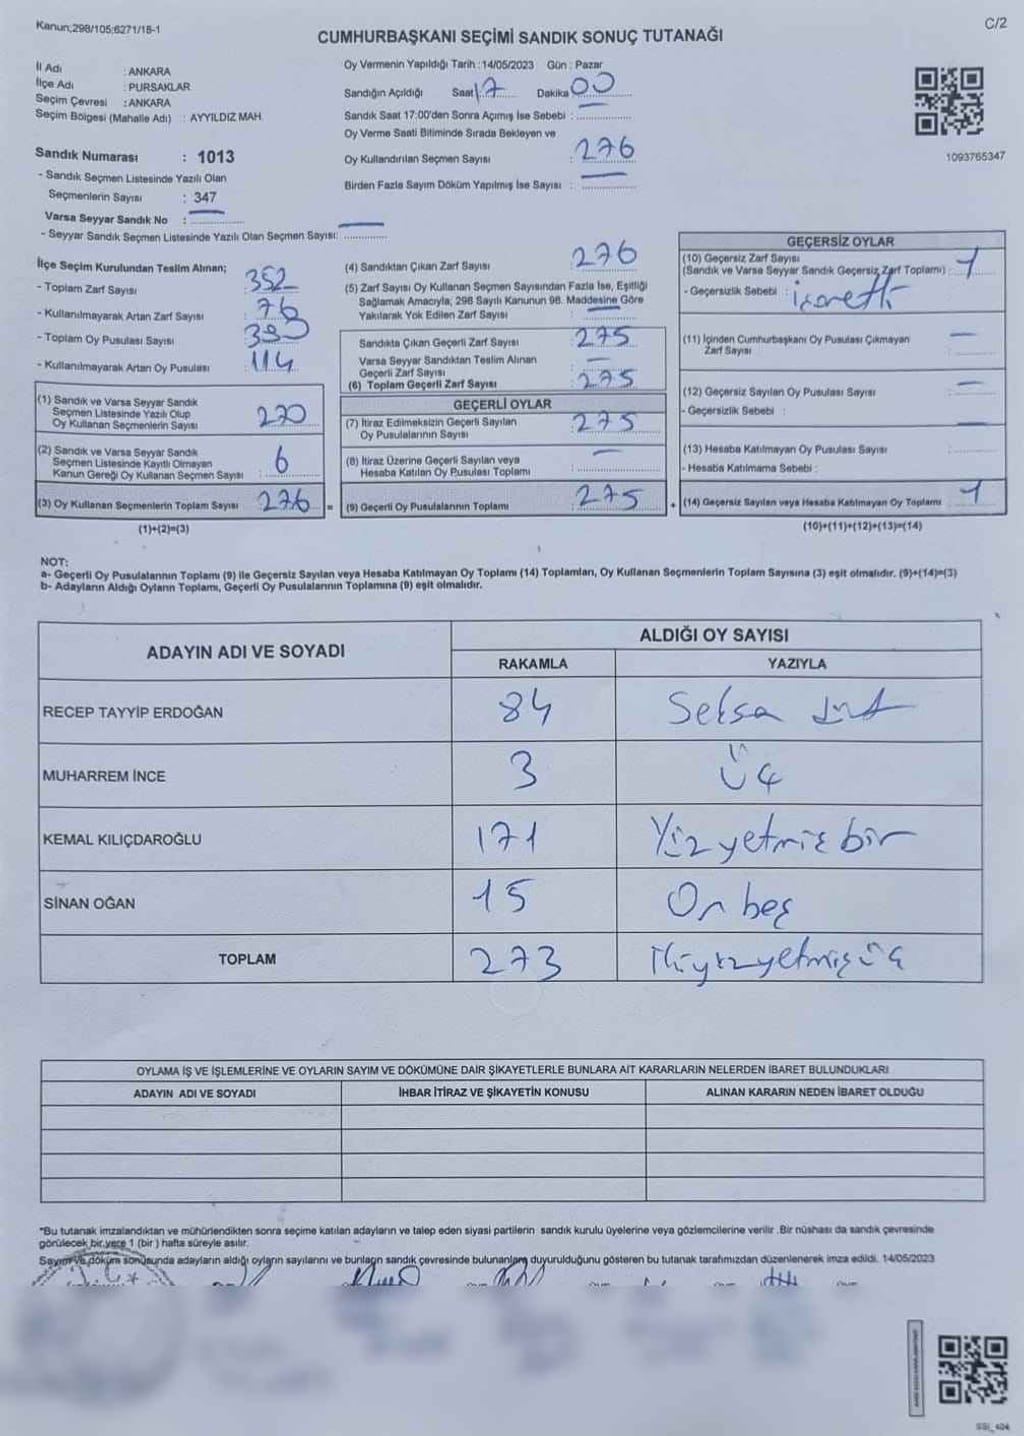 Kanun;298/105;6271/18-1
C/2
CUMHURBAŞKANI SEÇİMİ SANDIK SONUÇ TUTANAĞI
İl Adı : ANKARA
İlçe Adı : PURSAKLAR
Seçim Çevresi : ANKARA
Seçim Bölgesi (Mahalle Adı) : AYYILDIZ MAH.
Sandık Numarası : 1013
- Sandık Seçmen Listesinde Yazılı Olan
Seçmenlerin Sayısı : 347
Varsa Seyyar Sandık No :
- Seyyar Sandık Seçmen Listesinde Yazılı Olan Seçmen Sayısı:
Oy Vermenin Yapıldığı Tarih : 14/05/2023 Gün : Pazar
Sandığın Açıldığı Saat 17 Dakika 00
Sandık Saat 17:00'den Sonra Açımış İse Sebebi :
Oy Verme Saati Bitiminde Sırada Bekleyen ve
Oy Kullandırılan Seçmen Sayısı : 276
Birden Fazla Sayım Döküm Yapılmış İse Sayısı :
1093765347
İlçe Seçim Kurulundan Teslim Alınan;
- Toplam Zarf Sayısı : 352
- Kullanılmayarak Artan Zarf Sayısı : 76
- Toplam Oy Pusulası Sayısı :
- Kullanılmayarak Artan Oy Pusulası : 114
(1) Sandık ve Varsa Seyyar Sandık
Seçmen Listesinde Yazılı Olup
Oy Kullanan Seçmenlerin Sayısı : 270
(2) Sandık ve Varsa Seyyar Sandık
Seçmen Listesinde Kayıtlı Olmayan
Kanun Gereği Oy Kullanan Seçmen Sayısı : 6
(3) Oy Kullanan Seçmenlerin Toplam Sayısı 276 =
(1)+(2)=(3)
(4) Sandıktan Çıkan Zarf Sayısı : 276
(5) Zarf Sayısı Oy Kullanan Seçmen Sayısından Fazla İse, Eşitliği
Sağlamak Amacıyla, 298 Sayılı Kanunun 98. Maddesine Göre
Yakılarak Yok Edilen Zarf Sayısı :
Sandıkta Çıkan Geçerli Zarf Sayısı : 275
Varsa Seyyar Sandıktan Teslim Alınan
Geçerli Zarf Sayısı :
(6) Toplam Geçerli Zarf Sayısı : 275
GEÇERLİ OYLAR
(7) İtiraz Edilmeksizin Geçerli Sayılan
Oy Pusulalarının Sayısı : 275
(8) İtiraz Üzerine Geçerli Sayılan veya
Hesaba Katılan Oy Pusulası Toplamı :
(9) Geçerli Oy Pusulalarının Toplamı : 275 +
GEÇERSİZ OYLAR
(10) Geçersiz Zarf Sayısı
(Sandık ve Varsa Seyyar Sandık Geçersiz Zarf Toplamı) : 1
- Geçersizlik Sebebi : işaretli
(11) İçinden Cumhurbaşkanı Oy Pusulası Çıkmayan
Zarf Sayısı :
(12) Geçersiz Sayılan Oy Pusulası Sayısı :
- Geçersizlik Sebebi :
(13) Hesaba Katılmayan Oy Pusulası Sayısı :
- Hesaba Katılmama Sebebi :
(14) Geçersiz Sayılan veya Hesaba Katılmayan Oy Toplamı 1
(10)+(11)+(12)+(13)=(14)
NOT:
a- Geçerli Oy Pusulalarının Toplamı (9) ile Geçersiz Sayılan veya Hesaba Katılmayan Oy Toplamı (14) Toplamları, Oy Kullanan Seçmenlerin Toplam Sayısına (3) eşit olmalıdır. (9)+(14)=(3)
b- Adayların Aldığı Oyların Toplamı, Geçerli Oy Pusulalarının Toplamına (9) eşit olmalıdır.
ADAYIN ADI VE SOYADI
ALDIĞI OY SAYISI
RAKAMLA YAZIYLA
RECEP TAYYİP ERDOĞAN 84 Seksa dört
MUHARREM İNCE 3 üç
KEMAL KILIÇDAROĞLU 171 Yüzyetmiş bir
SİNAN OĞAN 15 On beş
TOPLAM 273 İkiyüzyetmişüç
OYLAMA İŞ VE İŞLEMLERİNE VE OYLARIN SAYIM VE DÖKÜMÜNE DAİR ŞİKAYETLERLE BUNLARA AİT KARARLARIN NELERDEN İBARET BULUNDUKLARI
ADAYIN ADI VE SOYADI İHBAR İTİRAZ VE ŞİKAYETİN KONUSU ALINAN KARARIN NEDEN İBARET OLDUĞU
*Bu tutanak imzalandıktan ve mühürlendikten sonra seçime katılan adayların ve talep eden siyasi partilerin sandık kurulu üyelerine veya gözlemcilerine verilir .Bir nüshası da sandık çevresinde
görülecek bir yere 1 (bir ) hafta süreyle asılır.
Sayım ve döküm sonucunda adayların aldığı oyların sayılarını ve bunların sandık çevresinde bulunanlara duyurulduğunu gösteren bu tutanak tarafımızdan düzenlenerek imza edildi. 14/05/2023
SSI_404